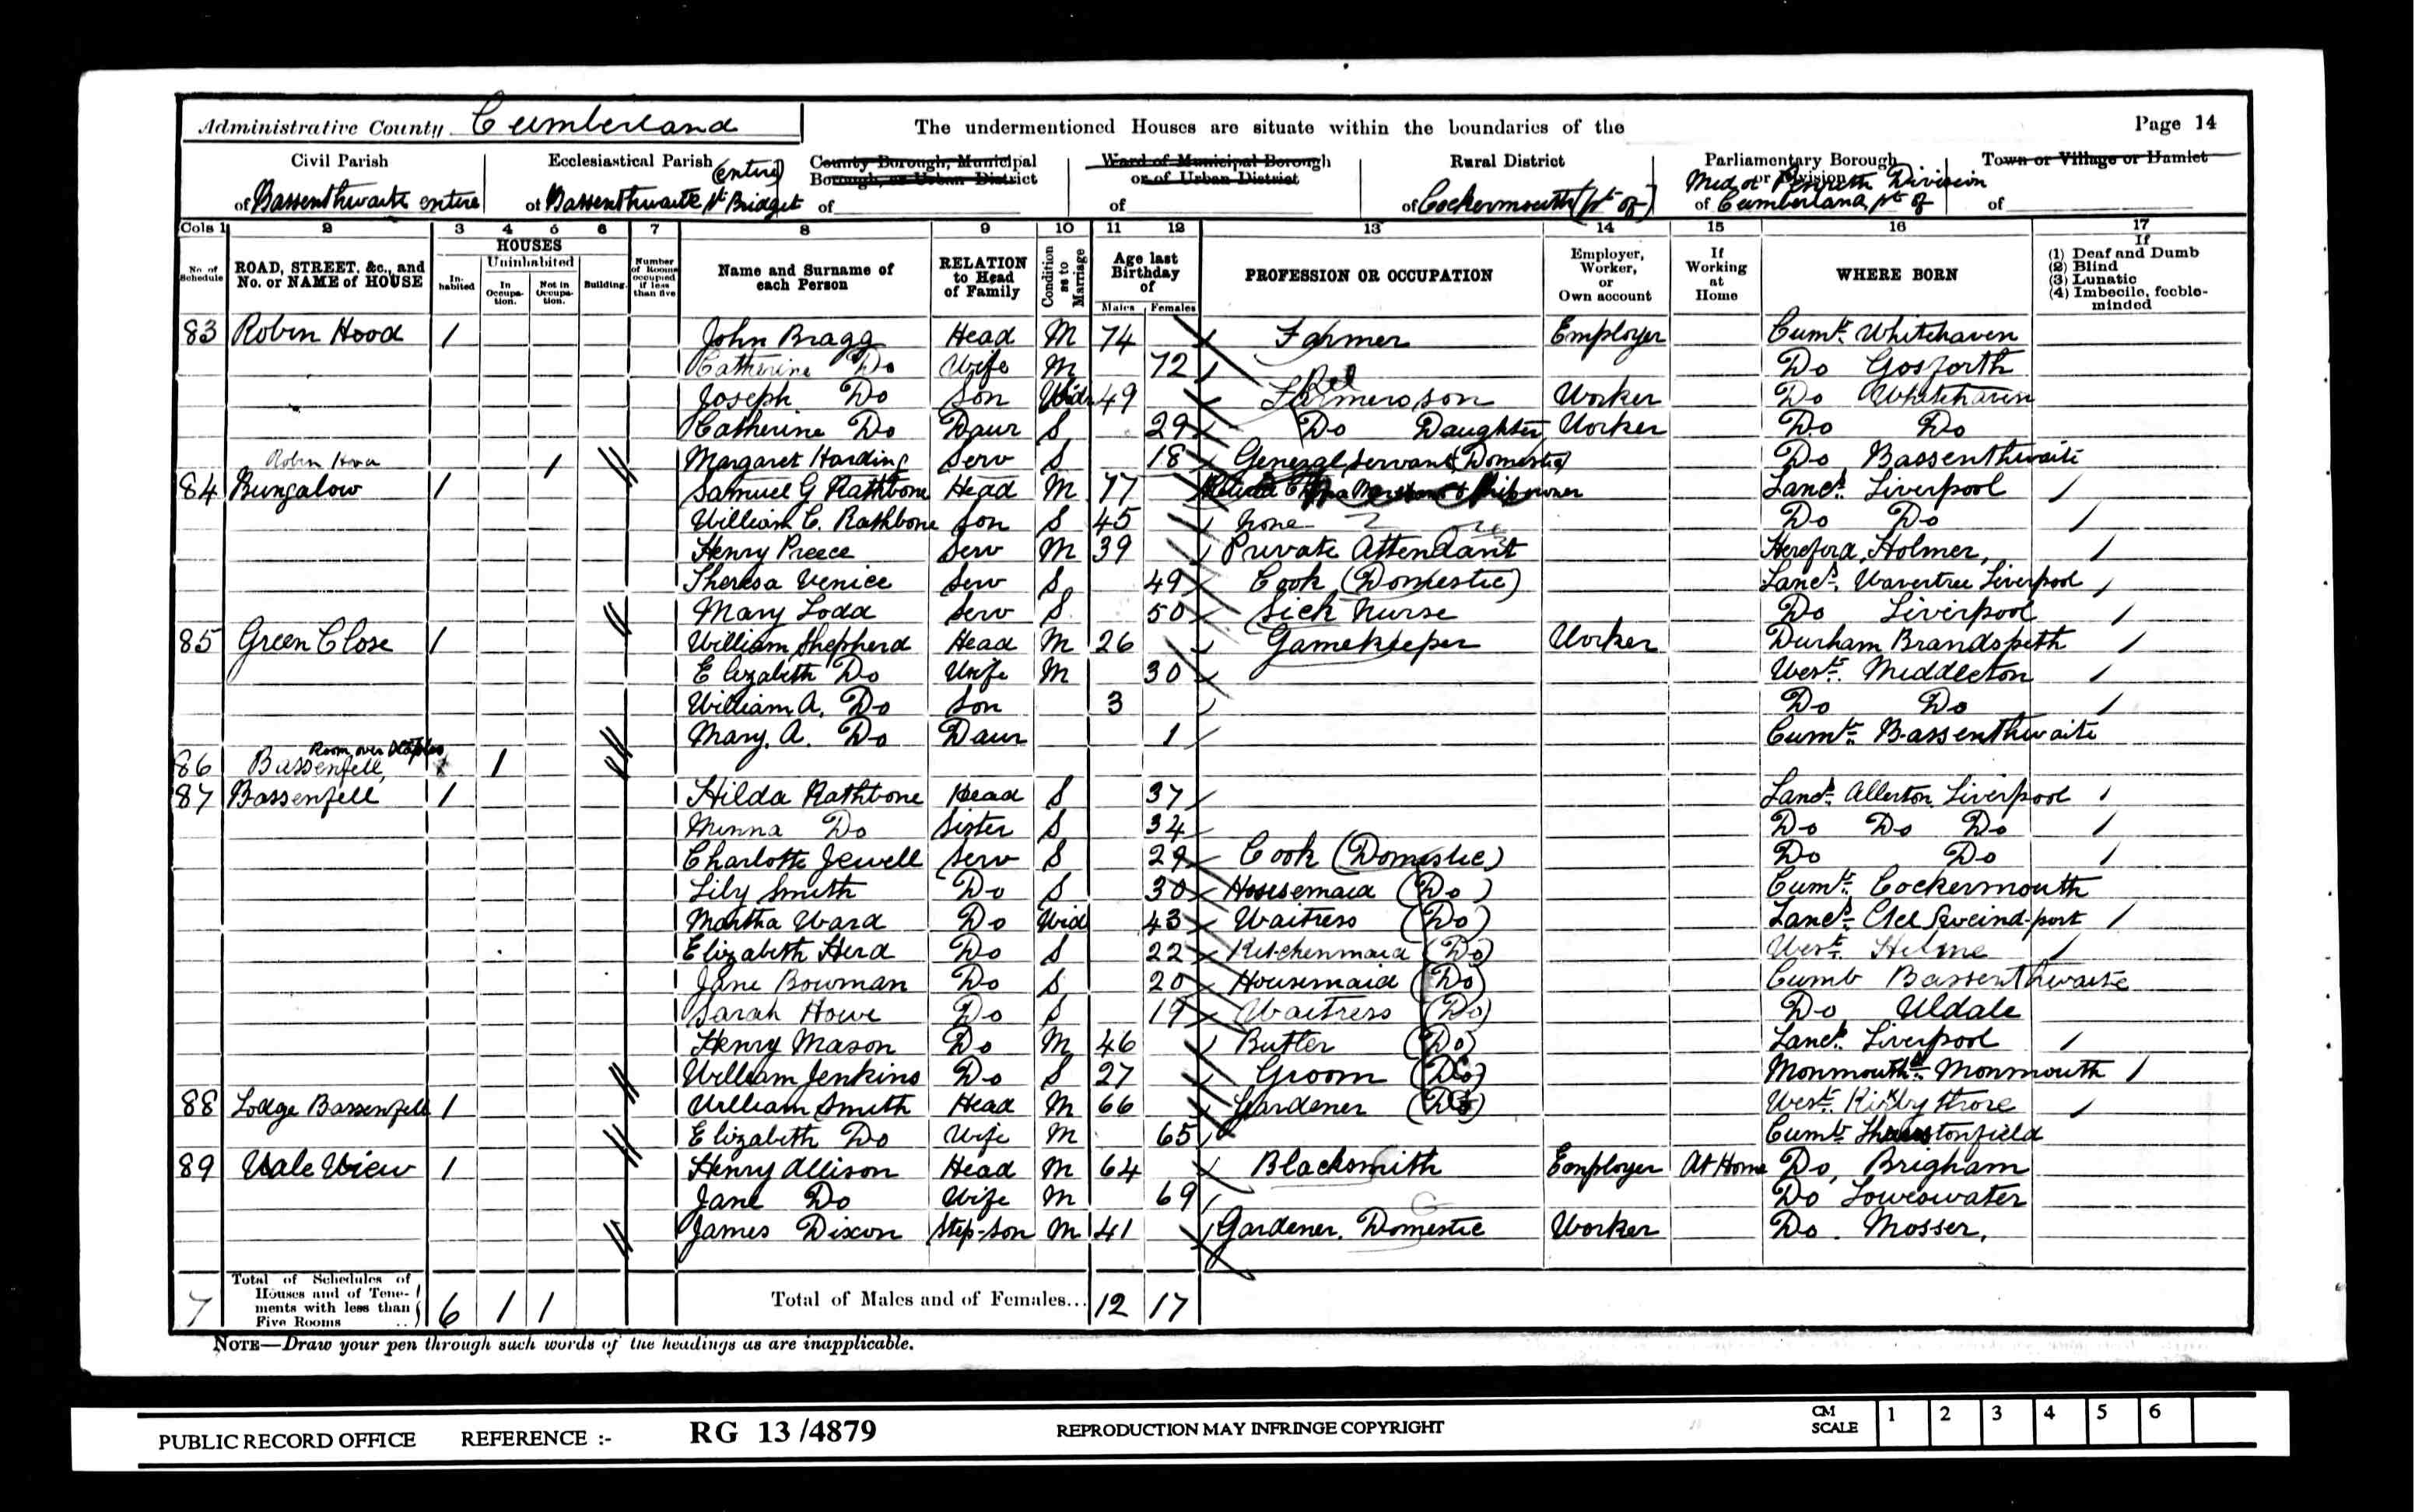 Administrative County Cumberland
The undermentioned Houses are situate within the boundaries of the
Page 14
Civil Parish of Bassenthwaite entire
Ecclesiastical Parish (entire) of Bassenthwaite St Bridget
County Borough, Municipal Borough, or Urban District of
Ward of Municipal Borough or of Urban District of
Rural District of Cockermouth (pt of)
Parliamentary Borough or Division of Mid or Penrith Division Cumberland, pt of
Town or Village or Hamlet of
Cols 1 2 3 4 5 6 7 8 9 10 11 12 13 14 15 16 17
No. of Schedule
ROAD, STREET, &c., and No. or NAME of HOUSE
HOUSES
In-habited
Uninhabited
In Occupa-tion.
Not in Occupa-tion.
Building.
Number of Rooms occupied if less than five
Name and Surname of each Person
RELATION to Head of Family
Condition as to Marriage
Age last Birthday of
Males Females
PROFESSION OR OCCUPATION
Employer, Worker, or Own account
If Working at Home
WHERE BORN
If
(1) Deaf and Dumb
(2) Blind
(3) Lunatic
(4) Imbecile, feeble-minded
83 Robin Hood 1 John Bragg Head M 74 Farmer Employer Cumb. Whitehaven
Catherine Do Wife M 72 Do Gosforth
Joseph Do Son Widr 49 Farmers son Worker Do Whitehaven
Catherine Do Daur S 29 Do Daughter Worker Do Do
Robin Hood 1 Margaret Harding Serv S 18 General Servant (Domestic) Do Bassenthwaite
84 Bungalow 1 Samuel G Rathbone Head M 77 Retired China Merchant & Shipowner Lancs. Liverpool
William C. Rathbone Son S 45 None Do Do
Henry Preece Serv M 39 Private Attendant Hereford, Holmer,
Theresa Venice Serv S 49 Cook (Domestic) Lancs. Wavertree Liverpool
Mary Todd Serv S 50 Sick Nurse Do Liverpool
85 Green Close 1 William Shepherd Head M 26 Gamekeeper Worker Durham Brandspeth
Elizabeth Do Wife M 30 West. Middleton
William A. Do Son 3 Do Do
Mary. A. Do Daur 1 Cumb. Bassenthwaite
86 Bassenfell, Room over 1
87 Bassenfell 1 Hilda Rathbone Head S 37 Lancs. Allerton Liverpool
Minna Do Sister S 34 Do Do Do
Charlotte Jewell Serv S 29 Cook (Domestic) Do Do
Lily Smith Do S 30 Housemaid (Do) Cumb. Cockermouth
Martha Ward Do Wid 43 Waitress (Do) Lancs.
Elizabeth Herd Do S 22 Kitchenmaid (Do) West. Helme
Jane Bowman Do S 20 Housemaid (Do) Cumb Bassenthwaite
Sarah Howe Do S 19 Waitress (Do) Do Uldale
Henry Mason Do M 46 Butler (Do) Lancs. Liverpool
William Jenkins Do S 27 Groom (Do) Monmouths. Monmouth
88 Lodge Bassenfell 1 William Smith Head M 66 Gardener (Do) West. Kirkby Thore
Elizabeth Do Wife M 65 Cumb. Thurstonfield
89 Vale View 1 Henry Allison Head M 64 Blacksmith Employer At Home Do, Brigham
Jane Do Wife M 69 Do Loweswater
James Dixon Step-son M 41 Gardener. Domestic Worker Do. Mosser.
7 Total of Schedules of Houses and of Tene-ments with less than Five Rooms 6 1 1 Total of Males and of Females... 12 17
NOTE—Draw your pen through such words of the headings as are inapplicable.
PUBLIC RECORD OFFICE REFERENCE :- RG 13/4879 REPRODUCTION MAY INFRINGE COPYRIGHT
CM SCALE 1 2 3 4 5 6